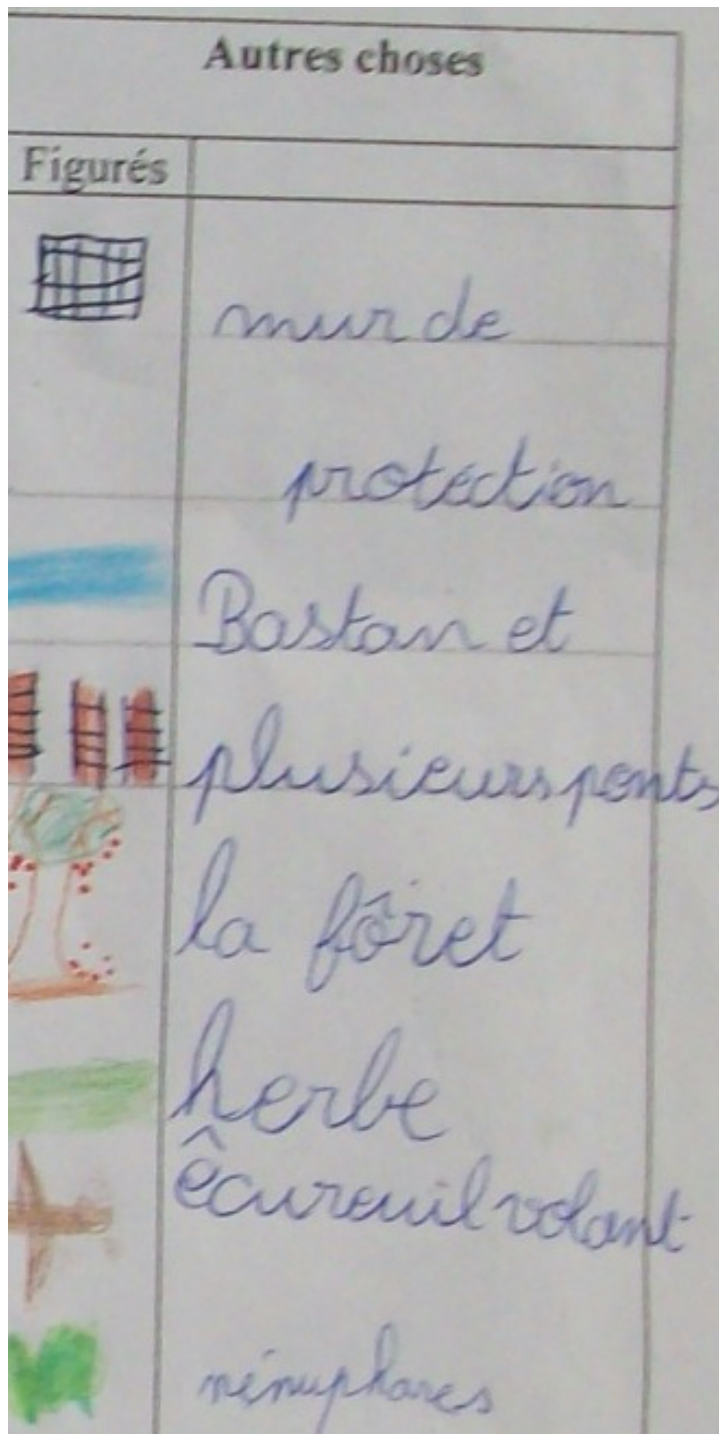 Autres choses
Figurés
mur de
protection
Bastan et
plusieurs ponts
la fôret
herbe
êcureuil volant
nénuphares